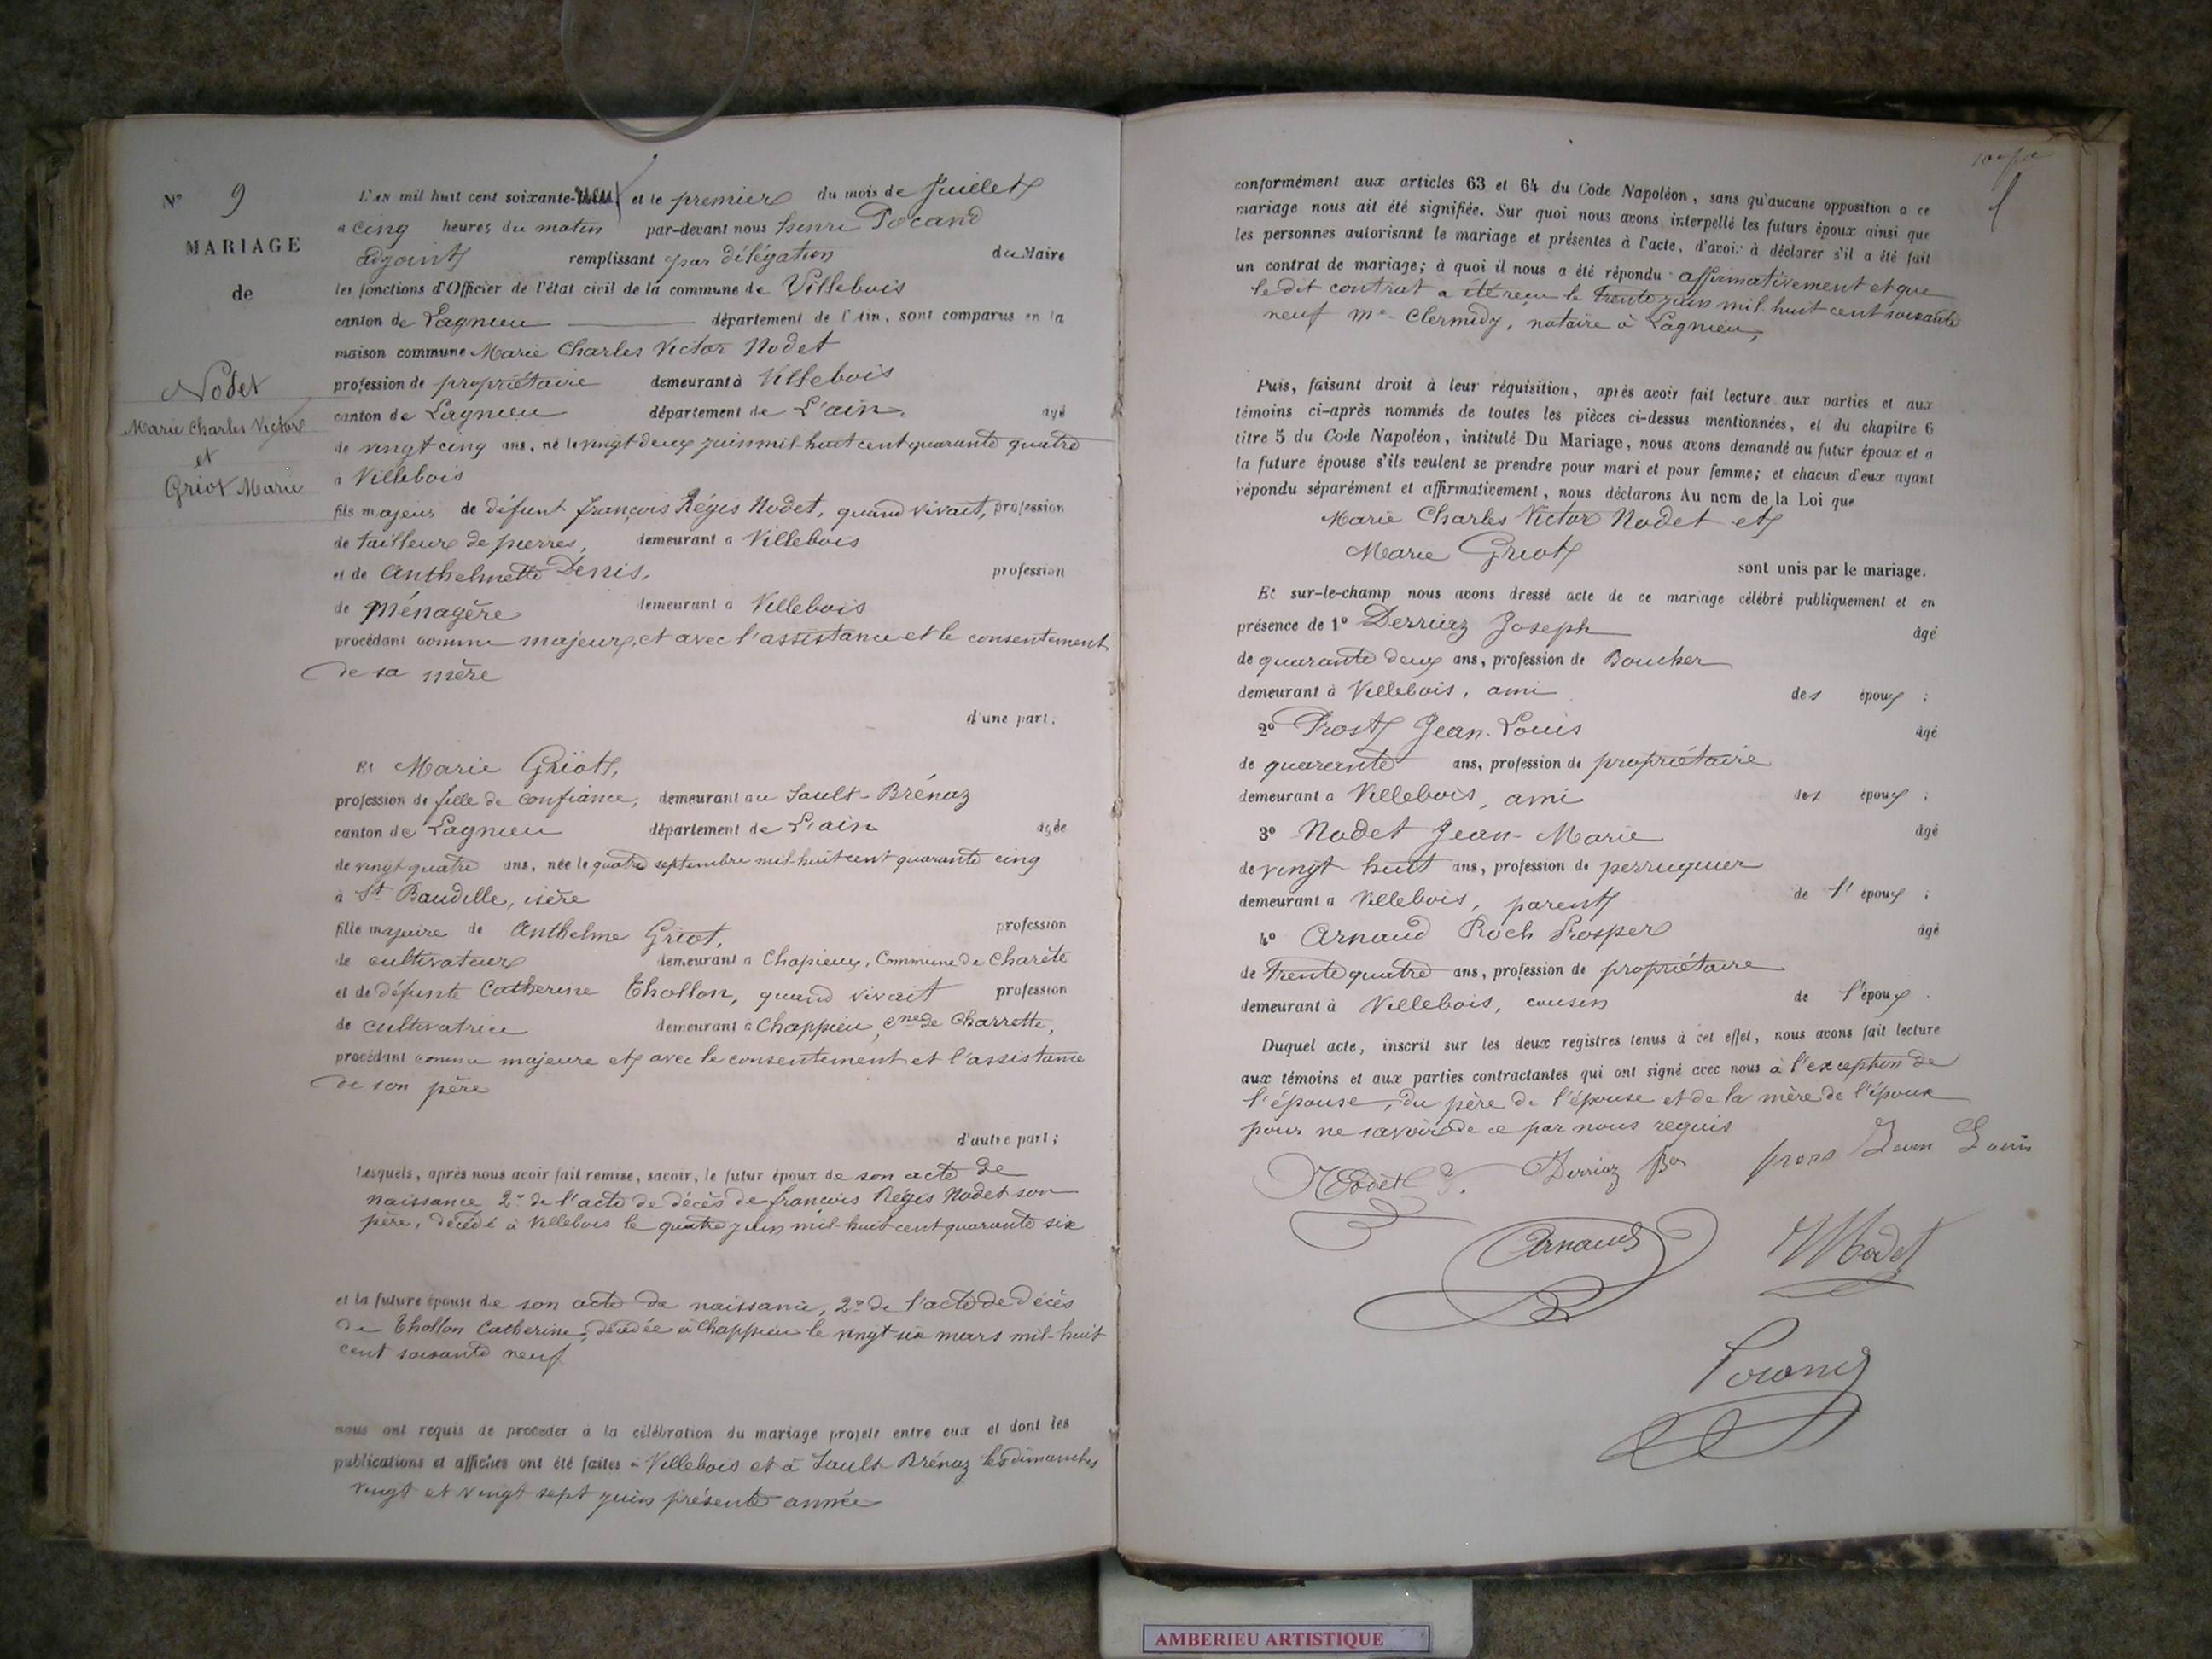 N° 9
MARIAGE
de
Nodet
Marie Charles Victor
et
Griot Marie
L'AN mil huit cent soixante- et le premier du mois de Juillet
a cinq heures du matin par-devant nous henri Pocand
adjoint remplissant par délégation du Maire
les fonctions d'Officier de l'état civil de la commune de Villebois
canton de Lagnieu département de l'Ain, sont comparus en la
maison commune Marie Charles Victor Nodet
profession de propriétaire demeurant à Villebois
canton de Lagnieu département de L'ain. âgé
de vingt cinq ans, né le vingt deux juin mil huit cent quarante quatre
à Villebois
fils majeur de défunt françois Régis Nodet, quand vivait, profession
de tailleur de pierres, demeurant a Villebois
et de Anthelmette Denis, profession
de Ménagère demeurant a Villebois
procédant comme majeur, et avec l'assistance et le consentement
de sa mère
d'une part;
Et Marie Griot,
profession de fille de confiance, demeurant au Sault-Brénaz
canton de Lagnieu département de L'ain âgée
de vingt quatre ans, née le quatre septembre mil huit cent quarante cinq
à St Baudille, isère
fille majeure de Anthelme Griot, profession
de cultivateur demeurant a Chapieux, Commune de Charète
et de défunte Catherine Thollon, quand vivait profession
de cultivatrice demeurant à Chappieu, cne de Charrette,
procédant comme majeure et avec le consentement et l'assistance
de son père
d'autre part;
Lesquels, après nous avoir fait remise, savoir, le futur époux de son acte de
naissance 2° de l'acte de décès de françois Régis Nodet son
père, décédé à Villebois le quatre juin mil huit cent quarante six
et la future épouse de son acte de naissance, 2° de l'acte de décès
de Thollon Catherine, décédée à Chappieu le vingt six mars mil huit
cent soixante neuf
nous ont requis de procéder à la célébration du mariage projeté entre eux et dont les
publications et affiches ont été faites à Villebois et à Sault Brénaz les dimanches
vingt et vingt sept juin présente année
conformément aux articles 63 et 64 du Code Napoléon, sans qu'aucune opposition a ce
mariage nous ait été signifiée. Sur quoi nous avons interpellé les futurs époux ainsi que
les personnes autorisant le mariage et présentes à l'acte, d'avoir à déclarer s'il a été fait
un contrat de mariage; à quoi il nous a été répondu affirmativement et que
le dit contrat a été reçu le trente juin mil huit cent soixante
neuf Me Clermidy, notaire à Lagnieu,
Puis, faisant droit à leur réquisition, après avoir fait lecture aux parties et aux
témoins ci-après nommés de toutes les pièces ci-dessus mentionnées, et du chapitre 6
titre 5 du Code Napoléon, intitulé Du Mariage, nous avons demandé au futur époux et à
la future épouse s'ils veulent se prendre pour mari et pour femme; et chacun d'eux ayant
répondu séparément et affirmativement, nous déclarons Au nom de la Loi que
Marie Charles Victor Nodet et
Marie Griot
sont unis par le mariage.
Et sur-le-champ nous avons dressé acte de ce mariage célébré publiquement et en
présence de 1° Derriaz Joseph âgé
de quarante deux ans, profession de Boucher
demeurant à Villebois, ami des époux;
2° Prost Jean-Louis âgé
de quarente ans, profession de propriétaire
demeurant a Villebois, ami des époux;
3° Nodet Jean-Marie âgé
de vingt huit ans, profession de perruquier
demeurant a Villebois, parent de l'époux;
4° Arnaud Roch Prosper âgé
de trente quatre ans, profession de propriétaire
demeurant à Villebois, cousin de l'époux.
Duquel acte, inscrit sur les deux registres tenus à cet effet, nous avons fait lecture
aux témoins et aux parties contractantes qui ont signé avec nous à l'exception de
l'épouse, du père de l'épouse et de la mère de l'époux
pour ne savoir de ce par nous requis
Nodet Derriaz Jean Louis
Arnaud Nodet
Pocand
AMBERIEU ARTISTIQUE